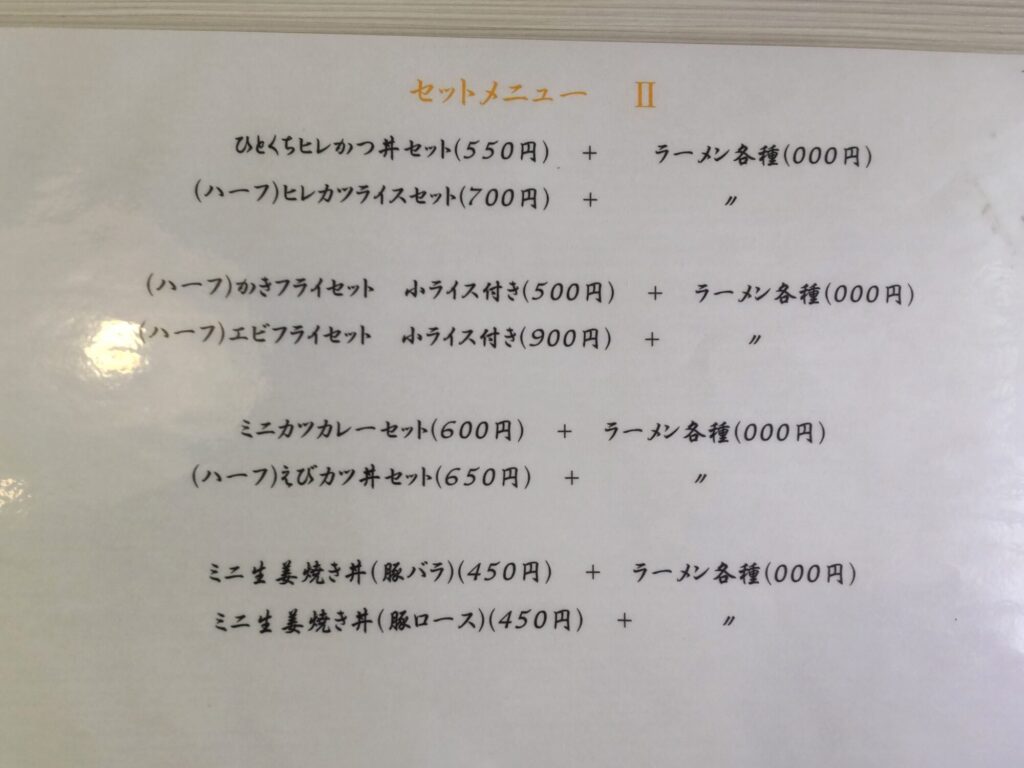 セットメニュー　Ⅱ
ひとくちヒレかつ丼セット(550円)　+　ラーメン各種(000円)
(ハーフ)ヒレカツライスセット(700円)　+　〃
(ハーフ)かきフライセット　小ライス付き(500円)　+　ラーメン各種(000円)
(ハーフ)エビフライセット　小ライス付き(900円)　+　〃
ミニカツカレーセット(600円)　+　ラーメン各種(000円)
(ハーフ)えびカツ丼セット(650円)　+　〃
ミニ生姜焼き丼(豚バラ)(450円)　+　ラーメン各種(000円)
ミニ生姜焼き丼(豚ロース)(450円)　+　〃